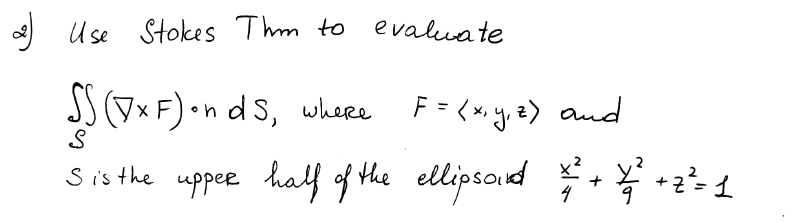 2) Use Stokes Thm to evaluate
∬_S (∇×F)•n dS, where F = <x, y, z> and
S is the upper half of the ellipsoid x²/4 + y²/9 + z² = 1